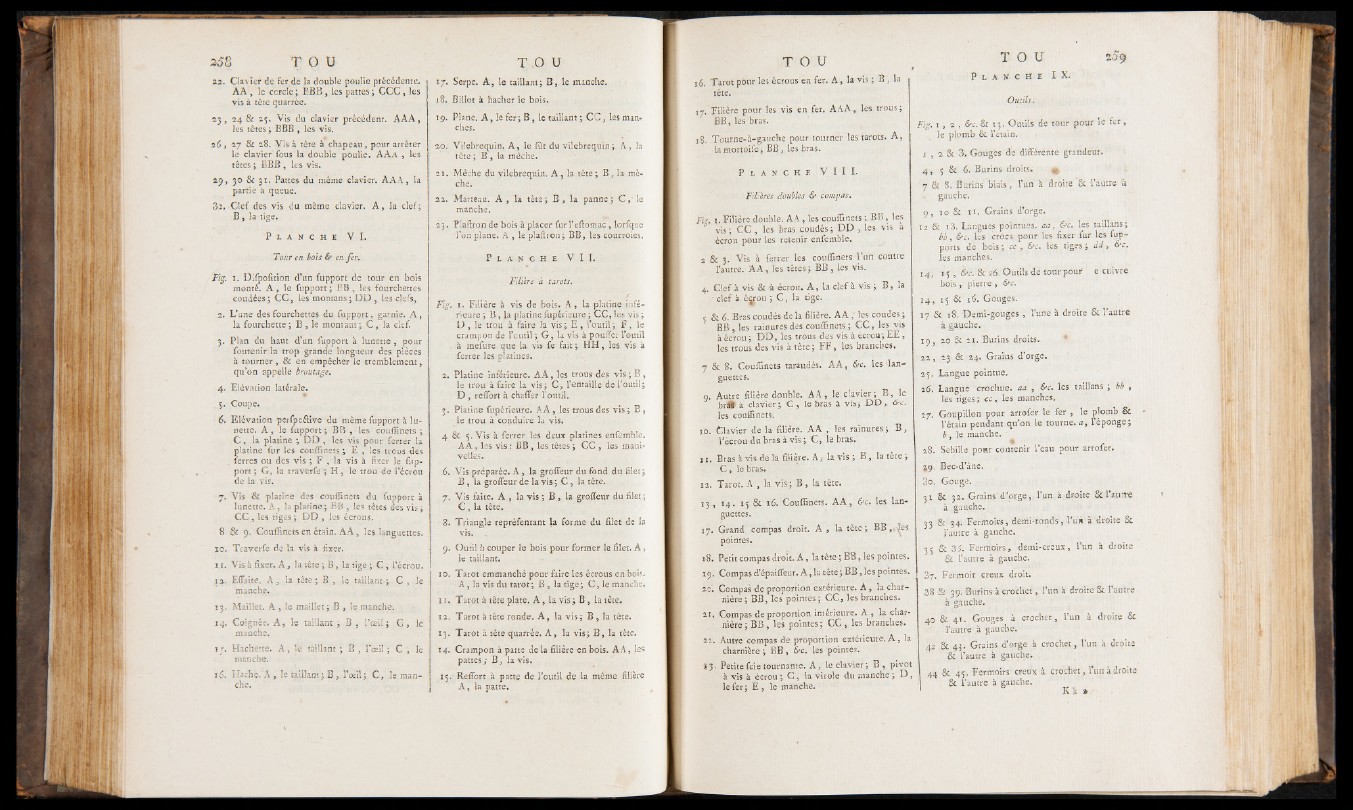 258 TOU
22. Clavier de fer de la double poulie précédente.
AA, le cercle; BBB, les pattes; CCC, les
vis à tête quarrée.
23, 24 & 25. Vis du clavier précédent. AAA,
les têtes; BBB, les vis.
26, 27 & 28. Vis à tête à chapeau, pour arrêter
le clavier sous la double poulie. AAA, les
têtes; BBB, les vis.
29, 30 & 31. Pattes du même clavier. AAA, la
partie à queue.
32. Clef des vis du même clavier. A, la clef;
B, la tige.
PLANCHE VI.
Tour en bois & en fer.
Fig. 1. Disposition d'un support de tour en bois
monté. A, le support; BB, les fourchettes
coudées; CC, les montans; DD, les clefs,
2. L'une des fourchettes du support, garnie. A,
la fourchette; B, le montant; C, la clef.
3. Plan du haut d'un support à lunette, pour
soutenir la trop grande longueur des pièces
à tourner, & en empêcher le tremblement,
qu'on appelle broutage.
4. Elévation latérale.
5. Coupe.
6. Elévation perspective du même support à lu-
nette. A, le support; BB, les coussinets;
C, la platine; DD, les vis pour serrer la
platine sur les coussinets; E, les trous des
serres ou des vis; F, la vis à fixer le sup-
port; G, la traverse; H, le trou de l'écrou
de la vis.
7. Vis & platine des coussinets du support à
lunette. A, la platine; BB, les têtes des vis;
CC, les tiges; DD, les écrous.
8 & 9. Coussinets en étain. AA, les languettes.
10. Traverse de la vis à fixer.
11. Vis à fixer. A, la tête; B, la tige; C, l'écrou.
12. Essaite. A, la tête; B, le taillant; C, le
manche.
13. Maillet. A, le maillet; B, le manche.
14. Coignée. A, le taillant, B, l'œil; C, le
manche.
15. Hachette. A, le taillant; B, l'œil; C, le
manche.
16. Hache. A, le taillant; B, l'œil; C, le man-
che.
TOU
17. Serpe. A, le taillant; B, le manche.
18. Billot à hacher le bois.
19. Plane. A, le fer; B, le taillant; CC, les man-
ches.
20. Vilebrequin. A, le fût du vilebrequin; A, la
tête; B, la mèche.
21. Mèche du vilebrequin. A, la tête; B, la mè-
che.
22. Marteau. A, la tête; B, la panne; C, le
manche.
23. Plastron de bois à placer sur l'estomac, lorsque
l'on plane. A, le plastron; BB, les courroies.
PLANCHE VII.
Filière à tarots.
Fig. 1. Filière à vis de bois. A, la platine infé-
rieure; B, la platine supérieure; CC, les vis;
D, le trou à faire la vis; E, l'outil; F, le
crampon de l'outil; G, la vis à pousser l'outil
à mesure que la vis se fait; HH, les vis à
serrer les platines.
2. Platine inférieure. AA, les trous des vis; B,
le trou à faire la vis; C, l'entaille de l'outil;
D, ressort à chasser l'outil.
3. Platine supérieure. AA, les trous des vis; B,
le trou à conduire la vis.
4 & 5. Vis à serrer les deux platines ensemble.
AA, les vis: BB, les têtes; CC, les mani-
velles.
6. Vis préparée. A, la grosseur du fond du filet;
B, la grosseur de la vis; C, la tête.
7. Vis faite. A, la vis; B, la grosseur du filet;
C, la tête.
8. Triangle représentant la forme du filet de la
vis.
9. Outil à couper le bois pour former le filet. A,
le taillant.
10. Tarot emmanché pour faire les écrous en bois.
A, la vis du tarot; B, la tige; C, le manche.
11. Tarot à tête plate. A, la vis; B, la tête.
12. Tarot à tête ronde. A, la vis; B, la tête.
13. Tarot à tête quarrée. A, la vis; B, la tête.
14. Crampon à patte de la filière en bois. AA, les
pattes; B, la vis.
15. Ressort à patte de l'outil de la même filière
A, la patte.
TOU
16. Tarot pour les écrous en fer. A, la vis; B, la
tête.
17. Filière pour les vis en fer. AAA, les trous;
BB, les bras.
18. Tourne-à-gauche pour tourner les tarots. A,
la mortoise; BB, les bras.
PLANCHE VIII.
Filières doubles & compas.
Fig. 1. Filière double. AA, les coussinets; BB, les
vis; CC, les bras coudés; DD, les vis à
écrou pour les retenir ensemble.
2 & 3. Vis à serrer les coussinets l'un contre
l'autre. AA, les têtes; BB, les vis.
4. Clef à vis & à écrou. A, la clef à vis; B, la
clef à écrou; C, la tige.
5 & 6. Bras coudés de la filière. AA, les coudes;
BB, les rainures des coussinets; CC, les vis
à écrou; DD, les trous des vis à écrou; EE,
les trous des vis à tête; FF, les branches.
7 & 8. Coussinets taraudés. AA, &c. les lan-
guettes.
9. Autre filière double. AA, le clavier; B, le
bras à clavier; C, le bras à vis; DD, &c.
les coussinets.
10. Clavier de la filière. AA, les rainures; B,
l'écrou du bras à vis; C, le bras.
11. Bras à vis de la filière. A, la vis; B, la tête;
C, le bras.
12. Tarot. A, la vis; B, la tête.
13, 14, 15 & 16. Coussinets. AA, &c. les lan-
guettes.
17. Grand compas droit. A, la tête; BB, les
pointes.
18. Petit compas droit. A, la tête; BB, les pointes.
19. Compas d'épaisseur. A, la tête; BB, les pointes.
20. Compas de proportion extérieure. A, la char-
nière; BB, les pointes; CC, les branches.
21. Compas de proportion intérieure. A, la char-
nière; BB, les pointes; CC, les branches.
22. Autre compas de proportion extérieure. A, la
charnière; BB, &c. les pointes.
23. Petite scie tournante. A, le clavier; B, pivot
à vis à écrou; C, la virole du manche; D,
le fer; E, le manche.
TOU 259
PLANCHE IX.
Outils.
Fig. 1, 2, &c. & 13. Outils de tour pour le fer,
le plomb & l'étain.
1, 2 & 3. Gouges de différente grandeur.
4, 5 & 6. Burins droits.
7 & 8. Burins biais, l'un à droite & l'autre à
gauche.
9, 10 & 11. Grains d'orge.
12 & 13. Langues pointues. aa, &c. les taillans;
bb, &c. les crocs pour les fixer sur les sup-
ports de bois; cc, &c. les tiges; dd, &c.
les manches.
14, 15, &c. & 26. Outils de tour pour e cuivre
bois, pierre, &c.
14, 15 & 16. Gouges.
17 & 18. Demi-gouges, l'une à droite & l'autre
à gauche.
19, 20 & 21. Burins droits.
22, 23 & 24. Grains d'orge.
25. Langue pointue.
26. Langue crochue. aa, &c. les taillans; bb,
les tiges; cc, les manches,
27. Goupillon pour arroser le fer, le plomb &
l'étain pendant qu'on le tourne. a, l'éponge;
b, le manche.
28. Sebille pour contenir l'eau pour arroser.
29. Bec-d'âne.
30. Gouge.
31 & 32. Grains d'orge, l'un à droite & l'autre
à gauche.
33 & 34. Fermoirs, demi-ronds, l'un à droite &
l'autre à gauche.
35 & 36. Fermoirs, demi-creux, l'un à droite
& l'autre à gauche.
37. Fermoir creux droit.
38 & 39. Burins à crochet, l'un à droite & l'autre
à gauche.
40 & 41. Gouges à crochet, l'un à droite &
l'autre à gauche.
42 & 43. Grains d'orge à crochet, l'un à droite
& l'autre à gauche.
44 & 45. Fermoirs creux à crochet, l'un à droite
& l'autre à gauche.